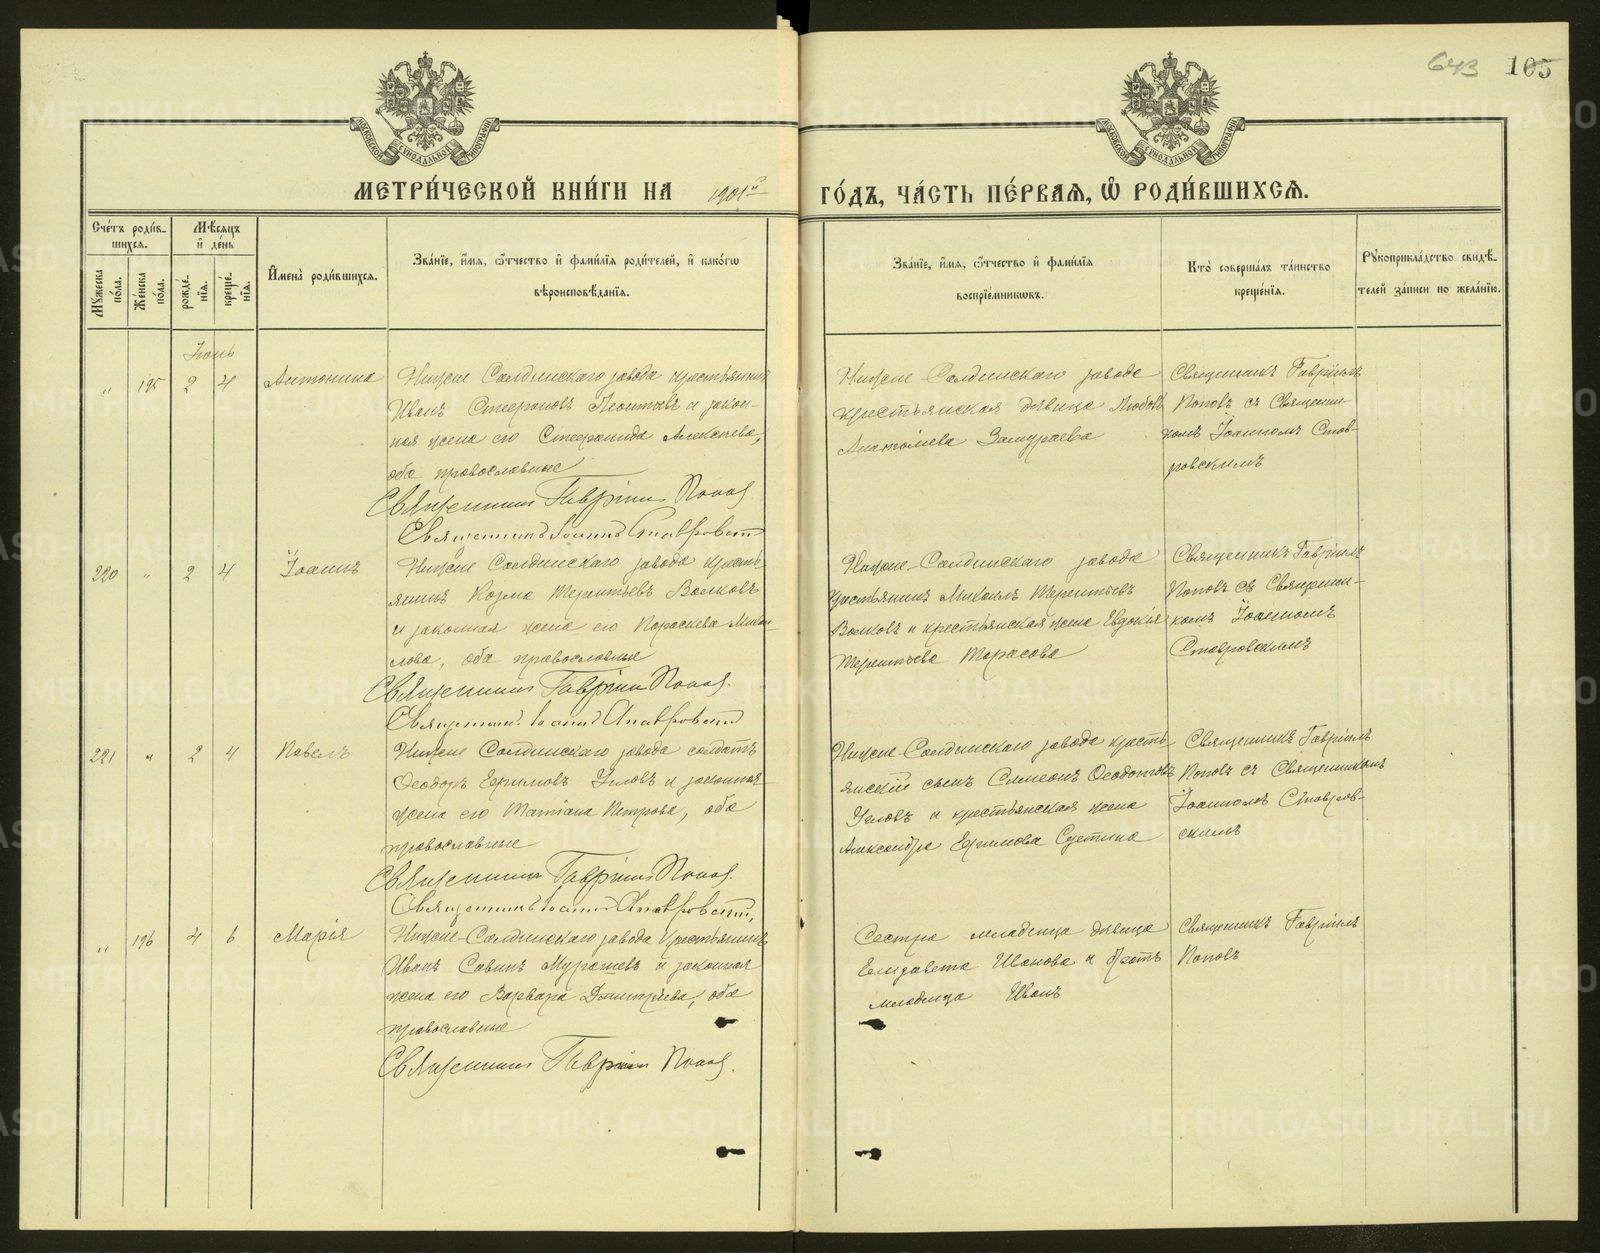 643 105
МЕТРИ́ЧЕСКОЙ КНИ́ГИ НА 1901й ГО́ДЪ, ЧА́СТЬ ПЕ́РВАЯ, Ѡ҆ РОДИ́ВШИХСЯ.
МОСКОВСКОЙ СѴНОДАЛЬНОЙ ТИПОГРАФІИ
МОСКОВСКОЙ СѴНОДАЛЬНОЙ ТИПОГРАФІИ
Сче́тъ роди́в-
шихся.
Мѣ́сяцъ
и҆ де́нь
Мꙋ́жеска по́ла.
Же́нска по́ла.
рожде́нїя.
креще́нїя.
И҆мена̀ роди́вшихся.
Зва́нїе, и҆́мя, ѻ҆́тчество и҆ фами́лїя роди́телей, и҆ како́гѡ
вѣроисповѣ́данїя.
Зва́нїе, и҆́мя, ѻ҆́тчество и҆ фами́лїя
воспрїе́мникѡвъ.
Кто̀ соверша́лъ та́инство
креще́нїя.
Рꙋкоприкла́дство свидѣ́-
телей за́писи по жела́нїю.
Іюнь
" 195 2 4 Антонина
Нижне Салдинскаго завода крестьянинъ
Иванъ Стефановъ Леонтьевъ и закон-
ная жена его Стефанида Алексѣева,
оба православные
Священникъ Гавріилъ Поповъ
Священникъ Іоаннъ Ставровскій
Нижне-Салдинскаго завода
крестьянская дѣвица Любовь
Анатоліева Замураева
Священникъ Гавріилъ
Поповъ съ Священни-
комъ Іоанномъ Став-
ровскимъ
220 " 2 4 Іоаннъ
Нижне Салдинскаго завода кресть-
янинъ Козма Терентьевъ Волковъ
и законная жена его Параскева Михаи-
лова, оба православные
Священникъ Гавріилъ Поповъ.
Священникъ Іоаннъ Ставровскій
Нижне-Салдинскаго завода
крестьянинъ Михаилъ Терентьевъ
Волковъ и крестьянская жена Евдокія
Терентьева Тарасова
Священникъ Гавріилъ
Поповъ съ Священни-
комъ Іоанномъ
Ставровскимъ
221 " 2 4 Павелъ
Нижне Салдинскаго завода солдатъ
Ѳеодоръ Ефимовъ Угловъ и законная
жена его Татіана Петрова, оба
православные
Священникъ Гавріилъ Поповъ.
Священникъ Іоаннъ Ставровскій,
Нижне-Салдинскаго завода кресть-
янскій сынъ Симеонъ Ѳеодотовъ
Угловъ и крестьянская жена
Александра Ефимова Сустина
Священникъ Гавріилъ
Поповъ съ Священникомъ
Іоанномъ Ставров-
скимъ
" 196 4 6 Марія
Нижне-Салдинскаго завода крестьянинъ
Иванъ Савинъ Мурашевъ и законная
жена его Варвара Димитріева, оба
православные
Священникъ Гавріилъ Поповъ.
Сестра младенца дѣвица
Елизавета Иванова и братъ
младенца Иванъ
Священникъ Гавріилъ
Поповъ
METRIKI.GASO-URAL.RU